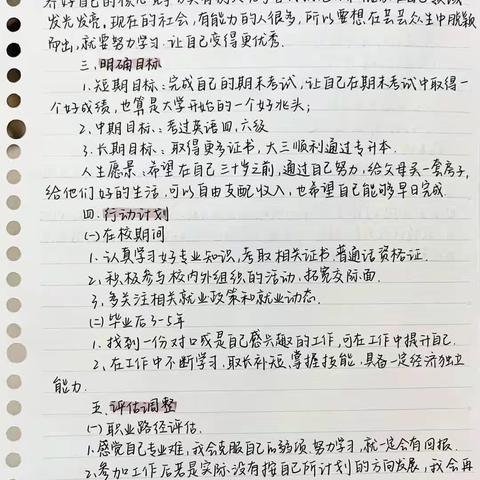 发光发亮.现在的社会,有能力的人很多,所以要想在芸芸众生中脱颖
而出,就要努力学习.让自己变得更优秀.
三.明确目标
1.短期目标:完成自己的期末考试,让自己在期末考试中取得一
个好成绩,也算是大学开始的一个好兆头;
2.中期目标:考过英语四,六级
3.长期目标:取得更多证书,大三顺利通过专升本.
人生愿景:希望在自己三十岁之前,通过自己努力,给父母买一套房子,
给他们好的生活,可以自由支配收入,也希望自己能够早日完成.
四.行动计划
(一)在校期间
1.认真学习好专业知识,考取相关证书.普通话资格证.
2.积极参与校内外组织的活动,拓宽交际面.
3.多关注相关就业政策和就业动态.
(二)毕业后3-5年
1.找到一份对口或是自己感兴趣的工作,可在工作中提升自己.
2.在工作中不断学习,取长补短,掌握技能,具备一定经济独立
能力.
五.评估调整
(一)职业路径评估.
1.感觉自己专业难,我会克服自己的弱项.努力学习,就一定会有回报.
2.参加工作后若是实际没有按自己所计划的方向发展,我会再